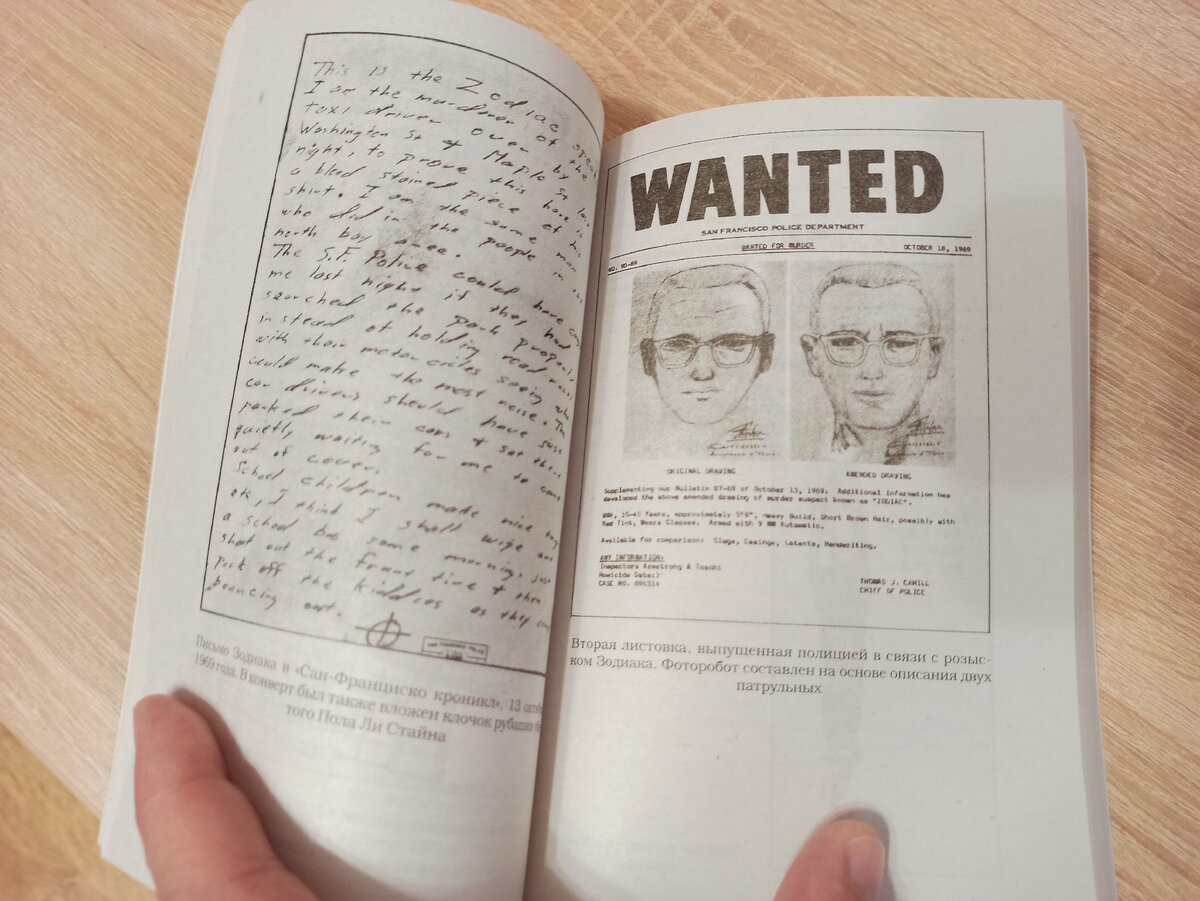 This is the Zodiac
I am the murderer of the
taxi driver over by
Washington St & Maple St
night, to prove this here is
a blood stained piece of his
shirt. I am the same man
who did in the people in the
north bay area.
The S.F. Police could have
me last night if they had
searched the park properly
instead of holding road races
with their motorcicles seeing who
could make the most noise. The
car drivers should have just
parked their cars & sat there
quietly waiting for me to come
out of cover.
School children make nice
I think I shall wipe out
a school bus some morning. Just
shoot out the front tire & then
pick off the kiddies as they come
bouncing out.
Письмо Зодиака в «Сан-Франциско кроникл», 13
1969 года. В конверт был также вложен клочок рубашки
того Пола Ли Стайна
WANTED
SAN FRANCISCO POLICE DEPARTMENT
NO. 90-69 WANTED FOR MURDER OCTOBER 18, 1969
ORIGINAL DRAWING AMENDED DRAWING
Supplementing our Bulletin 87-69 of October 13, 1969. Additional information has
developed the above amended drawing of murder suspect known as "ZODIAC".
WMA, 35-45 Years, approximately 5'8", Heavy Build, Short Brown Hair, possibly with
Red Tint, Wears Glasses. Armed with 9 MM Automatic.
Available for comparison: Slugs, Casings, Latents, Handwriting.
ANY INFORMATION:
Inspectors Armstrong & Toschi
Homicide Detail
CASE NO. 696314
THOMAS J. CAHILL
CHIEF OF POLICE
Вторая листовка, выпущенная полицией в связи с розыс-
ком Зодиака. Фоторобот составлен на основе описания двух
патрульных